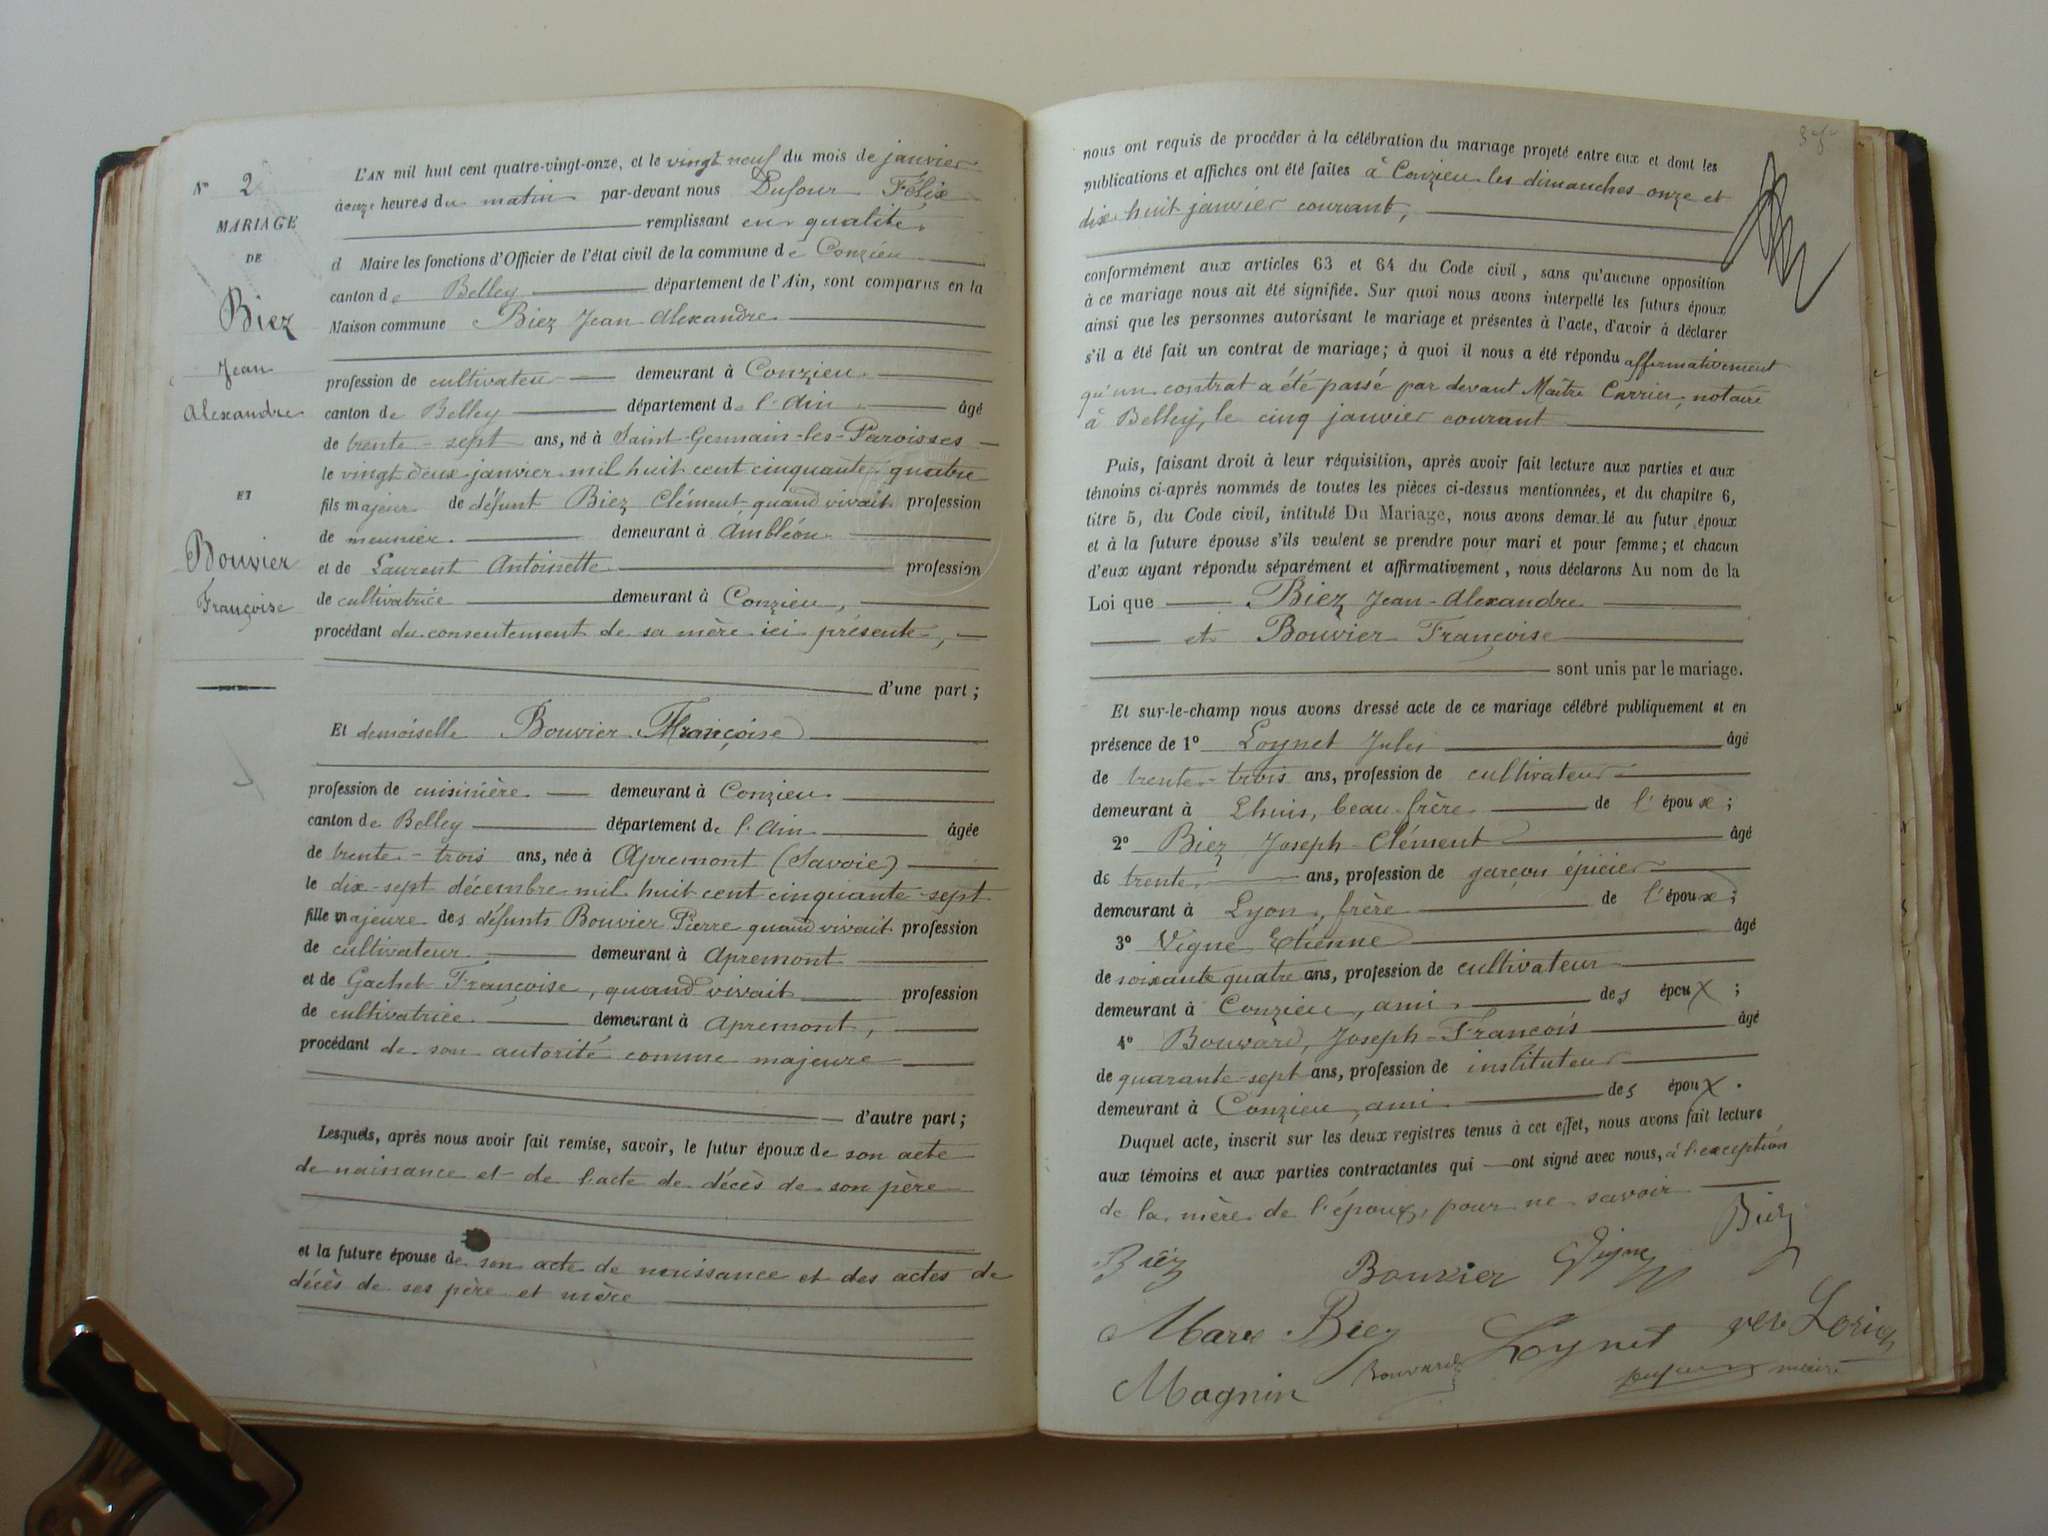 N° 2
MARIAGE
DE
Biez
Jean
Alexandre
ET
Bouvier
Françoise
L'AN mil huit cent quatre-vingt-onze, et le vingt neuf du mois de janvier
à onze heures du matin par-devant nous Dufour Félix
remplissant en qualité
d Maire les fonctions d'Officier de l'état civil de la commune de Conzieu
canton de Belley département de l'Ain, sont comparus en la
Maison commune Biez Jean Alexandre
profession de cultivateur demeurant à Conzieu
canton de Belley département de l'Ain âgé
de trente-sept ans, né à Saint-Germain-les-Paroisses
le vingt deux janvier mil huit cent cinquante quatre
fils majeur de défunt Biez Clément quand vivait profession
de meunier demeurant à Ambléon
et de Laurent Antoinette profession
de cultivatrice demeurant à Conzieu,
procédant du consentement de sa mère ici présente,
d'une part ;
Et demoiselle Bouvier Françoise
profession de cuisinière demeurant à Conzieu
canton de Belley département de l'Ain âgée
de trente-trois ans, née à Apremont (Savoie)
le dix-sept décembre mil huit cent cinquante-sept
fille majeure des défunts Bouvier Pierre quand vivait profession
de cultivateur demeurant à Apremont
et de Gachet Françoise, quand vivait profession
de cultivatrice demeurant à Apremont,
procédant de son autorité comme majeure
d'autre part ;
Lesquels, après nous avoir fait remise, savoir, le futur époux de son acte
de naissance et de l'acte de décès de son père
et la future épouse de son acte de naissance et des actes de
décès de ses père et mère
nous ont requis de procéder à la célébration du mariage projeté entre eux et dont les
publications et affiches ont été faites à Conzieu les dimanches onze et
dix huit janvier courant,
conformément aux articles 63 et 64 du Code civil, sans qu'aucune opposition
à ce mariage nous ait été signifiée. Sur quoi nous avons interpellé les futurs époux
ainsi que les personnes autorisant le mariage et présentes à l'acte, d'avoir à déclarer
s'il a été fait un contrat de mariage; à quoi il nous a été répondu affirmativement
qu'un contrat a été passé par devant Maître Carrier, notaire
à Belley, le cinq janvier courant
Puis, faisant droit à leur réquisition, après avoir fait lecture aux parties et aux
témoins ci-après nommés de toutes les pièces ci-dessus mentionnées, et du chapitre 6,
titre 5, du Code civil, intitulé Du Mariage, nous avons demandé au futur époux
et à la future épouse s'ils veulent se prendre pour mari et pour femme; et chacun
d'eux ayant répondu séparément et affirmativement, nous déclarons Au nom de la
Loi que Biez Jean-Alexandre
et Bouvier Françoise
sont unis par le mariage.
Et sur-le-champ nous avons dressé acte de ce mariage célébré publiquement et en
présence de 1° Loynet Jules âgé
de trente-trois ans, profession de cultivateur
demeurant à Lhuis, beau-frère de l'époux ;
2° Biez Joseph-Clément âgé
de trente ans, profession de garçon épicier
demeurant à Lyon, frère de l'époux ;
3° Vigne Etienne âgé
de soixante quatre ans, profession de cultivateur
demeurant à Conzieu, ami des époux ;
4° Bouvard, Joseph-François âgé
de quarante-sept ans, profession de instituteur
demeurant à Conzieu, ami des époux.
Duquel acte, inscrit sur les deux registres tenus à cet effet, nous avons fait lecture
aux témoins et aux parties contractantes qui ont signé avec nous, à l'exception
de la mère de l'époux, pour ne savoir
Biez Bouvier Vigne Biez
Biez Loynet
Magnin Bouvard maire